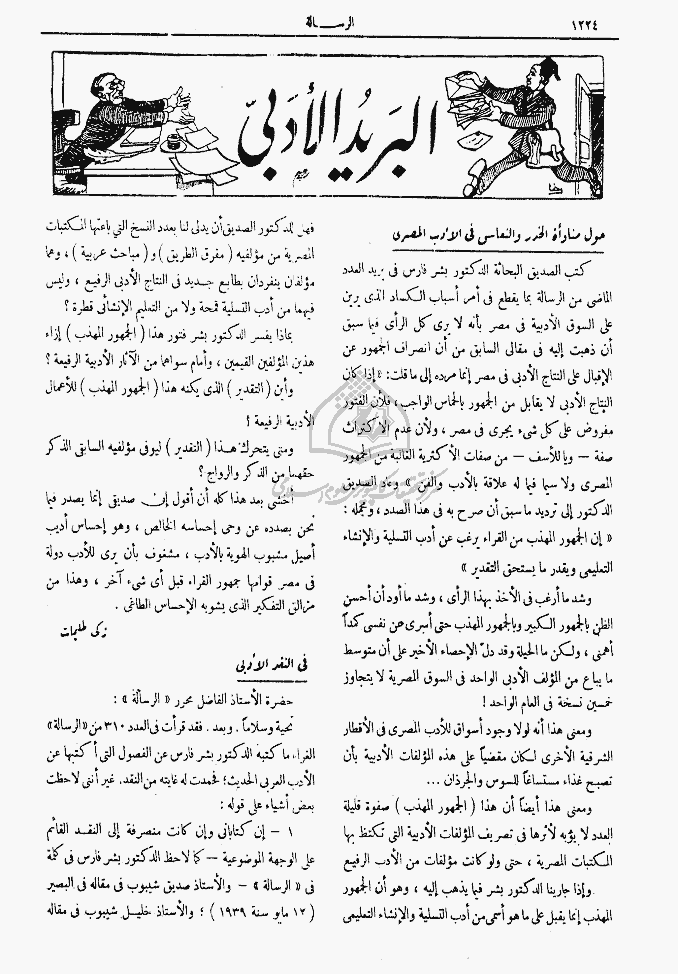 ١٢٢٤
الرسالة
البريد الأدبي
حول مناوأة الخدر والنعاس فى الأدب المصرى
كتب الصديق البحاثة الدكتور بشر فارس فى بريد العدد
الماضى من الرسالة بما يقطع فى أهم أسباب الكساد الذى يرين
على السوق الأدبية فى مصر بأنه لا يرى كل الرأى فيما سبق
أن ذهبت إليه فى مقالى السابق من أن انصراف الجمهور عن
الإقبال على النتاج الأدبى فى مصر إنما مرده إلى ما قلت: «إذا كان
النتاج الأدبى لا يقابل من الجمهور بالحماس الواجب، فلأن الفتور
مفروض على كل شىء يجرى فى مصر، ولأن عدم الاكتراث
صفة — وياللأسف — من صفات الأكثرية الغالبة من الجمهور
المصرى ولا سيما فيما له علاقة بالأدب والفن» وعاد الصديق
الدكتور إلى ترديد ما سبق أن صرح به فى هذا الصدد، ومجمله:
«إن الجمهور المهذب من القراء يرغب عن أدب التسلية والإنشاء
التعليمى ويقدر ما يستحق التقدير»
وشد ما أرغب فى الأخذ بهذا الرأى، وشد ما أود أن أحسن
الظن بالجمهور الكبير وبالجمهور المهذب حتى أسرى عن نفسى كمداً
أهمنى، ولكن ما الحيلة وقد دلّ الإحصاء الأخير على أن متوسط
ما يباع من المؤلف الأدبى الواحد فى السوق المصرية لا يتجاوز
خمسين نسخة فى العام الواحد!
ومعنى هذا أنه لولا وجود أسواق للأدب المصرى فى الأقطار
الشرقية الأخرى لكان مقضياً على هذه المؤلفات الأدبية بأن
تصبح غذاء مستساغاً للسوس والجرذان ...
ومعنى هذا أيضاً أن هذا (الجمهور المهذب) صفوة قليلة
العدد لا يؤبه لأثرها فى تصريف المؤلفات الأدبية التى تكتظ بها
المكتبات المصرية، حتى ولو كانت مؤلفات من الأدب الرفيع
وإذا جارينا الدكتور بشر فيما يذهب إليه، وهو أن الجمهور
المهذب إنما يقبل على ما هو أسمى من أدب التسلية والإنشاء التعليمى
فهل للدكتور الصديق أن يدلى لنا بعدد النسخ التى باعتها المكتبات
المصرية من مؤلفيه (مفرق الطريق) و (مباحث عربية)، وهما
مؤلفان ينفردان بطابع جديد فى النتاج الأدبى الرفيع، وليس
فيهما من أدب التسلية لمحة ولا من التعليم الإنشائى قطرة؟
بماذا يفسر الدكتور بشر فتور هذا (الجمهور المهذب) إزاء
هذين المؤلفين القيمين، وأمام سواهما من الآثار الأدبية الرفيعة؟
وأين (التقدير) الذى يكنه هذا (الجمهور المهذب) للأعمال
الأدبية الرفيعة!
ومتى يتحرك هذا (التقدير) ليوفى مؤلفيه السابقى الذكر
حقهما من الذكر والرواج؟
أخشى بعد هذا كله أن أقول إن صديقى إنما يصدر فيما
نحن بصدده عن وحى إحساسه الخالص، وهو إحساس أديب
أصيل مشبوب الهوية بالأدب، مشغوف بأن يرى للأدب دولة
فى مصر قوامها جمهور القراء قبل أى شىء آخر، وهذا من
مزالق التفكير الذى يشوبه الإحساس الطاغى.
زكى طليمات
فى النقد الأدبى
حضرة الأستاذ الفاضل محرر «الرسالة»:
تحية وسلاماً. وبعد. فقد قرأت فى العدد ٣١٠ من «الرسالة»
الغراء ما كتبه الدكتور بشر فارس عن الفصول التى أكتبها عن
الأدب العربى الحديث؛ فحمدت له غايته من النقد. غير أننى لاحظت
بعض أشياء على قوله:
١ — إن كتاباتى وإن كانت منصرفة إلى النقد القائم
على الوجهة الموضوعية — كما لاحظ الدكتور بشر فارس فى كلمة
فى «الرسالة» — والأستاذ صديق شيبوب فى مقاله فى البصير
(١٢ مايو سنة ١٩٣٩)؛ والأستاذ خليل شيبوب فى مقاله